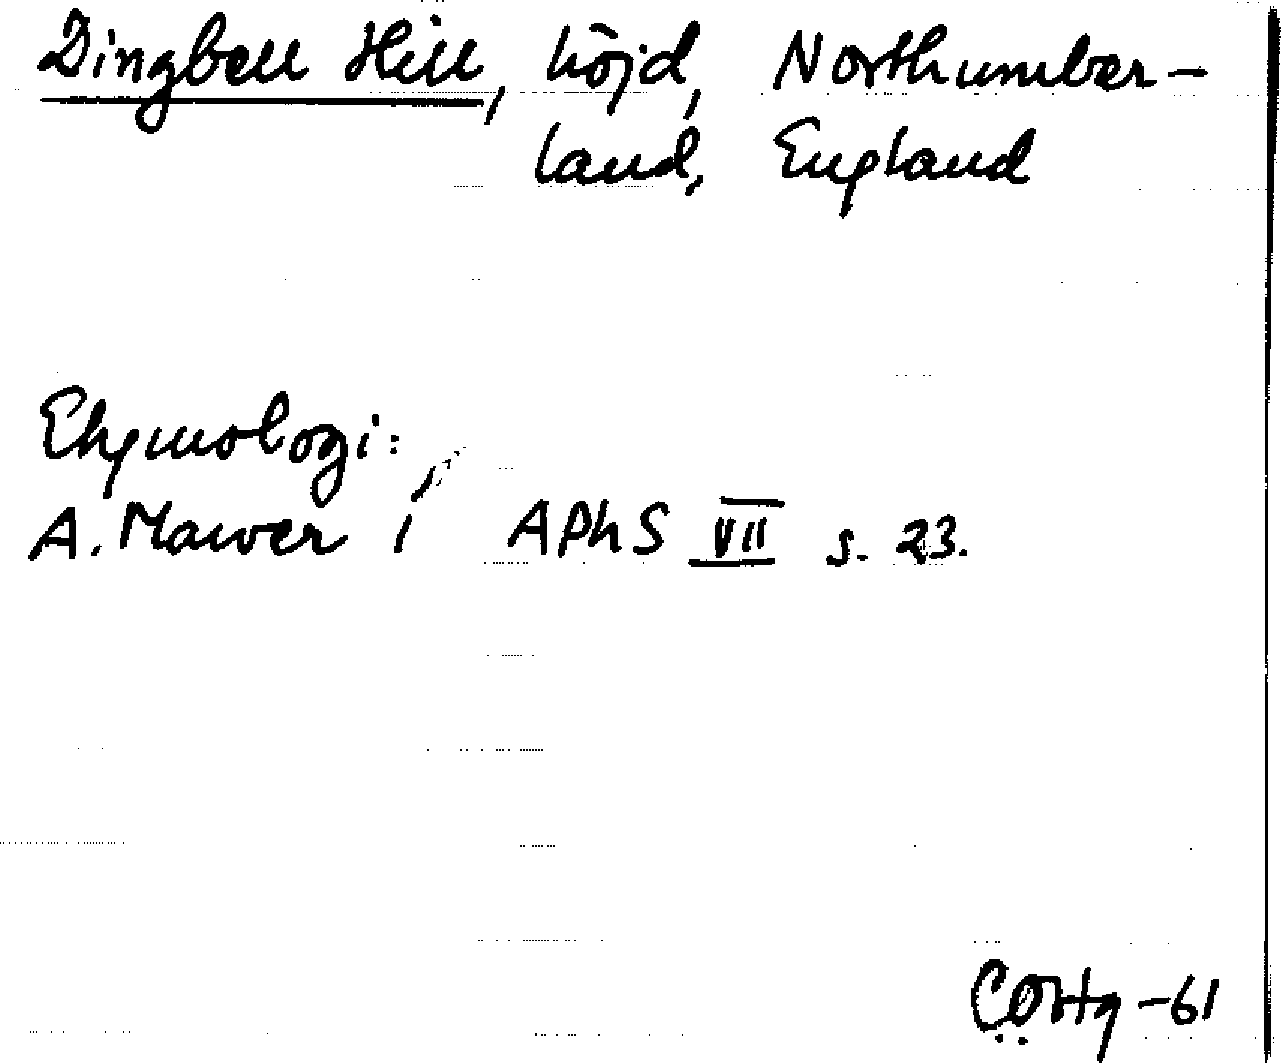 Dingbell Hill, höjd, Northumber-
land, England
Etymologi:
A. Mawer i APhS VII s. 23.
-61